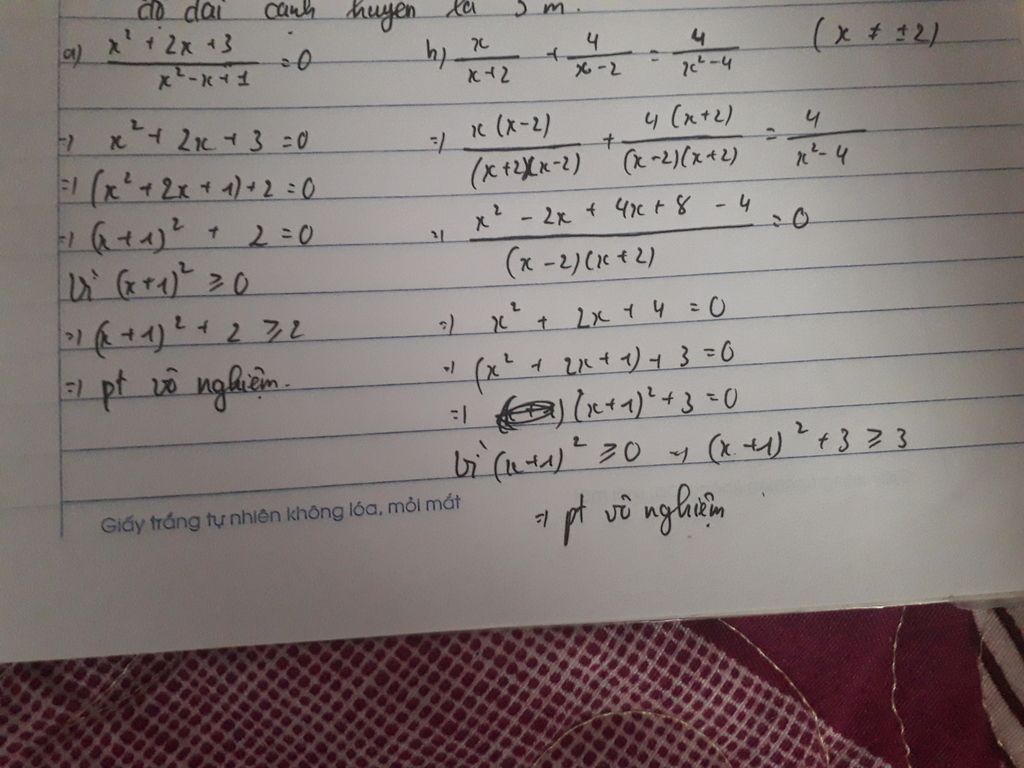 độ dài cạnh huyền là 5 m.
a) (x² + 2x + 3)/(x² - x + 1) = 0
=> x² + 2x + 3 = 0
=> (x² + 2x + 1) + 2 = 0
=> (x + 1)² + 2 = 0
Vì (x+1)² ≥ 0
=> (x + 1)² + 2 ≥ 2
=> pt vô nghiệm.
h) x/(x+2) + 4/(x-2) = 4/(x²-4) (x ≠ ±2)
=> x(x-2)/(x+2)(x-2) + 4(x+2)/(x-2)(x+2) = 4/(x²-4)
=> (x² - 2x + 4x + 8 - 4)/(x-2)(x+2) = 0
=> x² + 2x + 4 = 0
=> (x² + 2x + 1) + 3 = 0
=> (x+1)² + 3 = 0
Vì (x+1)² ≥ 0 => (x+1)² + 3 ≥ 3
=> pt vô nghiệm
Giấy trắng tự nhiên không lóa, mỏi mắt